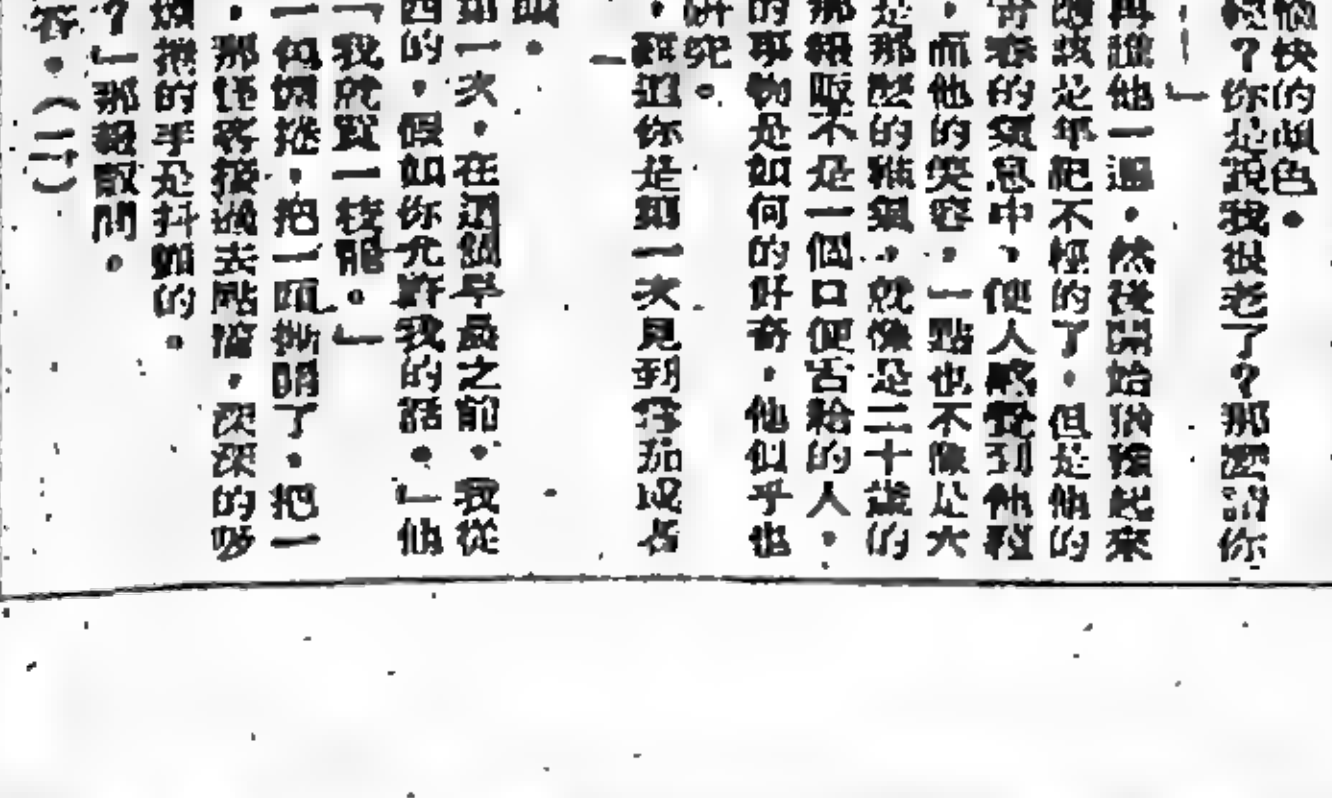 愉快的顏色。
輕?你是說我很老了?那麼請你
——」
再讓他一遍,然後開始猶豫起來
應該是年紀不輕的了,但是他的
青春的氣息中,使人感覺到他程
,而他的笑容,一點也不像是大
是那麼的稚氣,就像是二十歲的
那報販不是一個口便舌給的人。
的事物是如何的好奇,他似乎也
研究。
,難道你是頭一次見到雪茄或者
一
頭。
第一次,在這個早晨之前,我從
西的,假如你允許我的話。」他
「我就買一枝罷。」
一包煙捲,把一頭撕開了,把一
,那怪客接過去點著,深深的吸
煙捲的手是抖顫的。
?」那報販問。
客。(二)